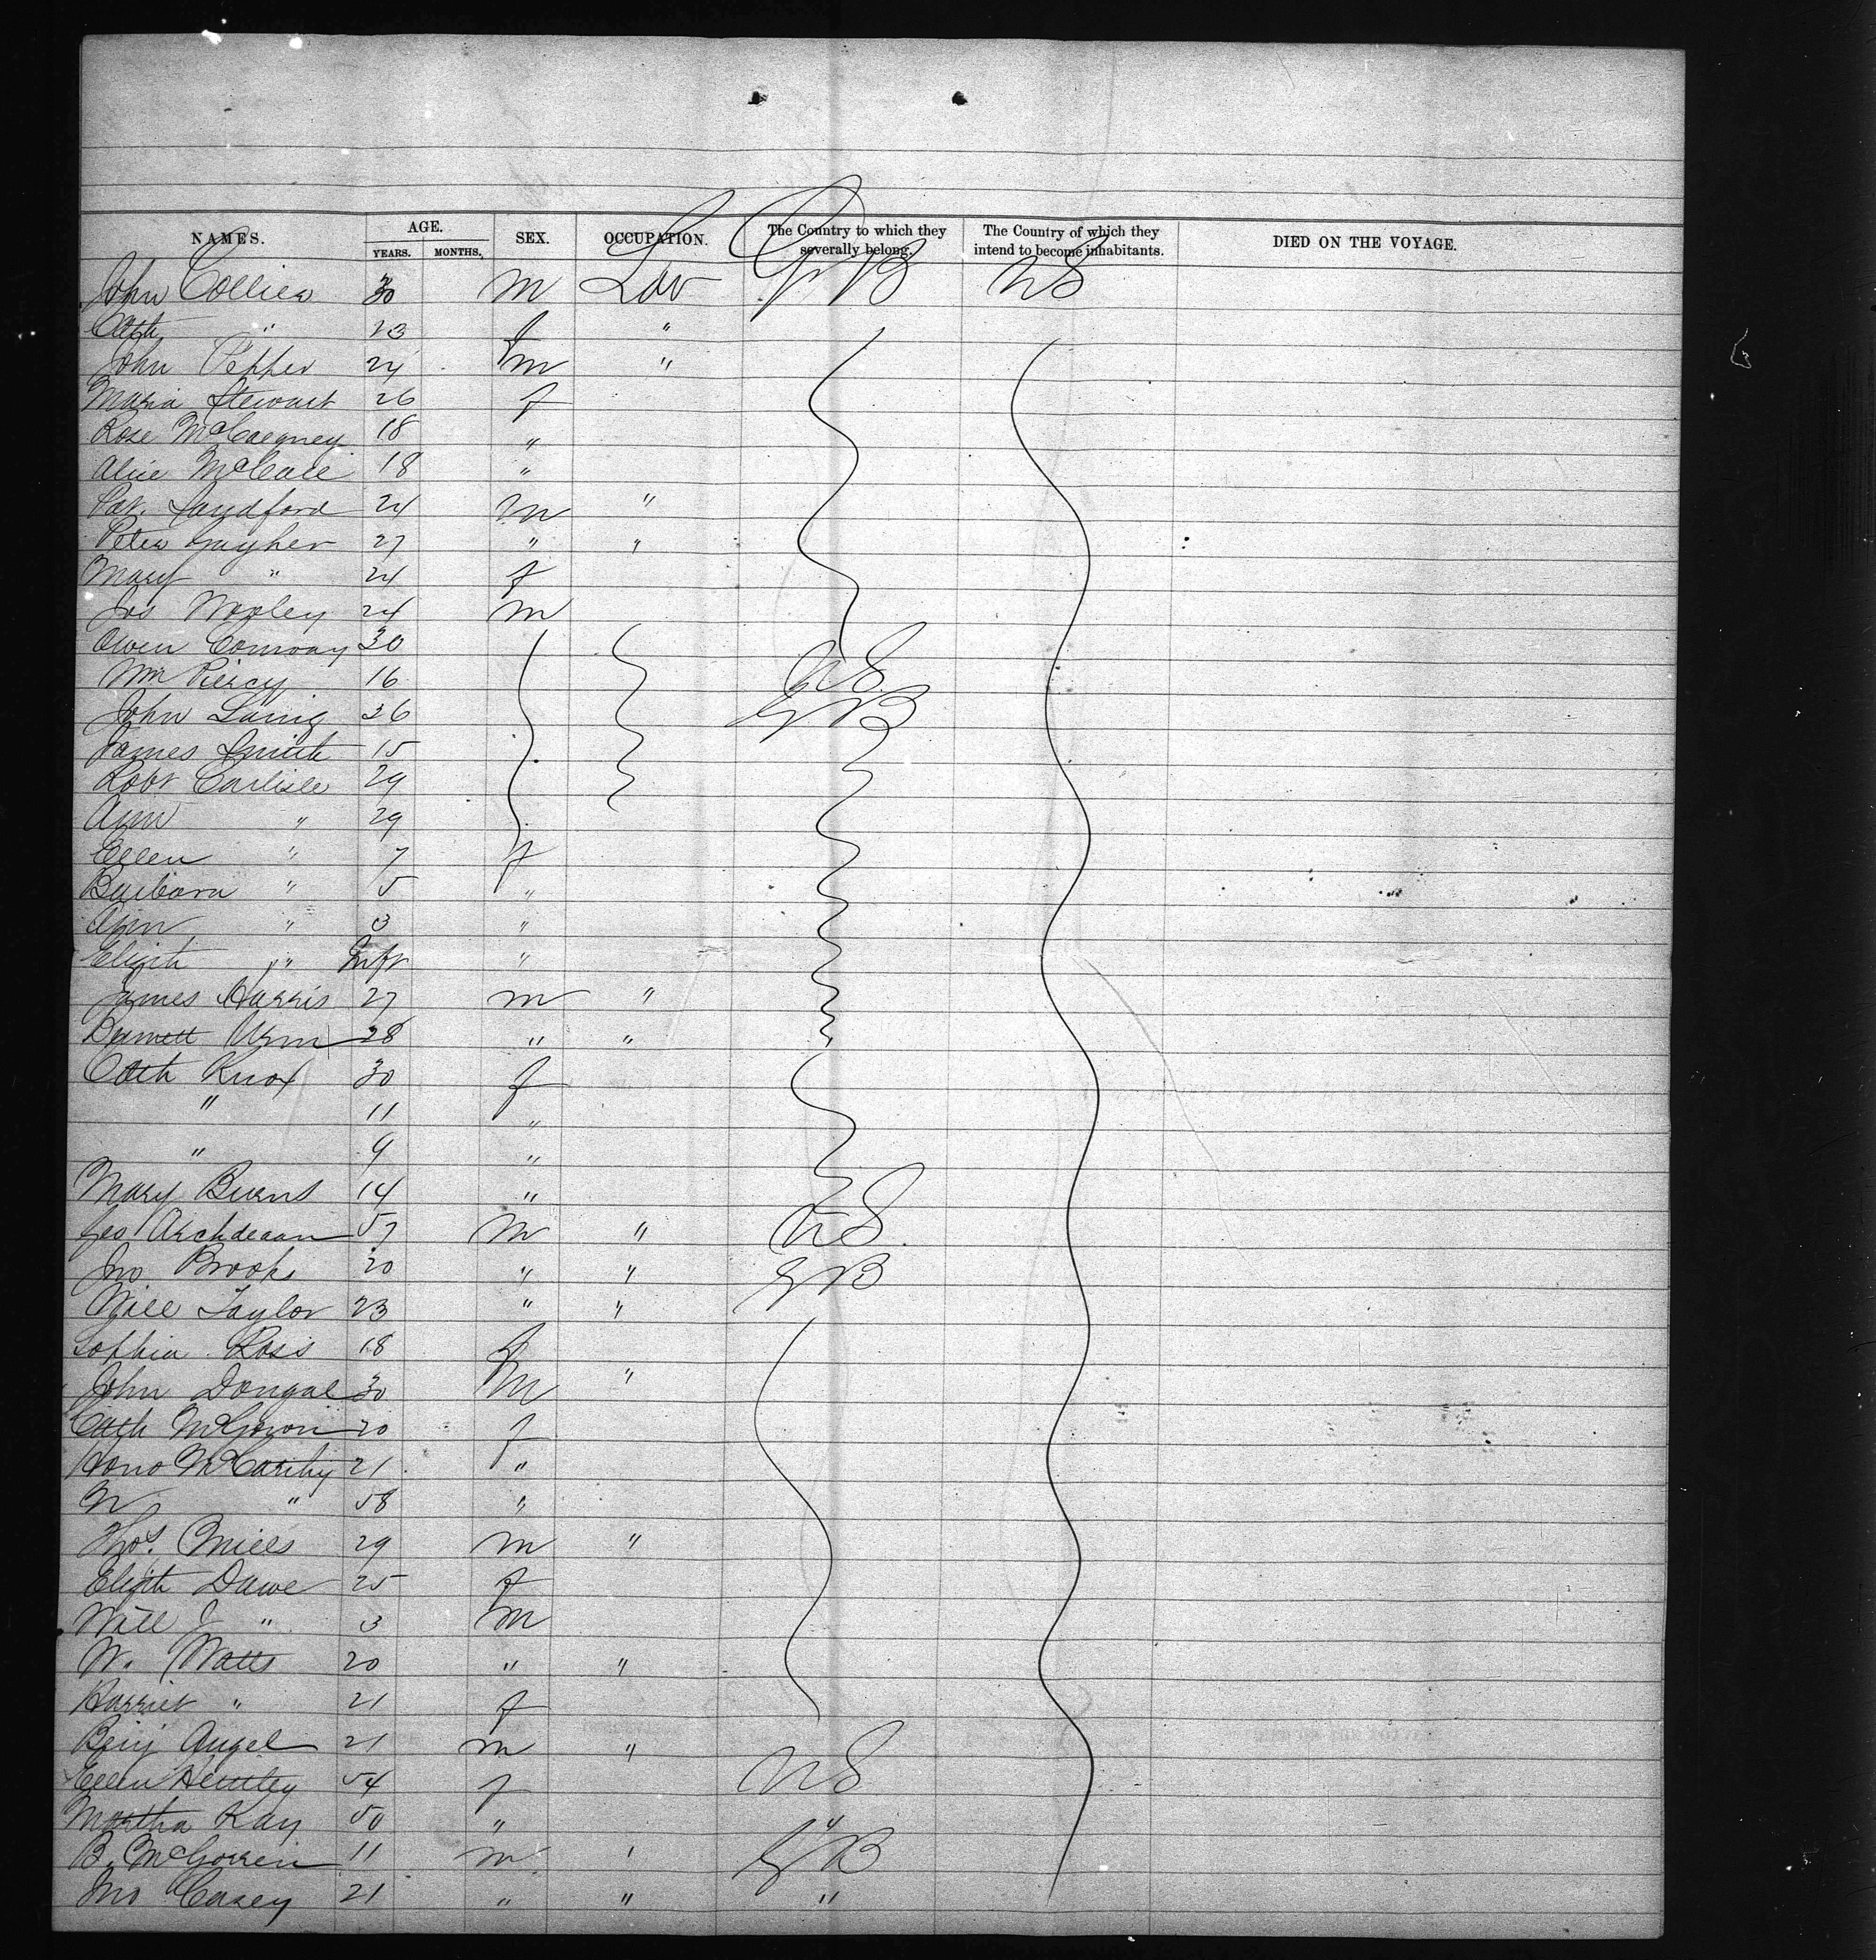 NAMES. AGE. YEARS. MONTHS. SEX. OCCUPATION. The Country to which they severally belong. The Country of which they intend to become inhabitants. DIED ON THE VOYAGE.
John Collier 30 m Lab Gr B US
Cath " 23 f "
John Pepper 24 m "
Maria Stewart 26 f
Rose McCaegney 18 "
Alice McCall 18 "
Pat. Sandford 24 m "
Peter 27 " "
Mary " 24 f
Jos Worley 24 m
Owen Conway 30
Wm Piercy 16 US
John Laing 36 Gr B
James Smith 15
Robt Carlisle 29
Ann " 29
Ellen " 7 f
Barbara " 5 "
Ann " 3 "
Elizth " Inft "
James Harris 27 m "
Barnett 28 " "
Cath Knox 30 f
" 11 "
" 9 "
Mary Burns 14 "
Geo Archdeacon 57 m " US
Jno Brooks 20 " " Gr B
Will Taylor 23 " "
Sophia Ross 18 f
John Dougal 30 m "
Cath McGowan 20 f
Hono McCarthy 21 "
" 58 "
Thos. Mills 29 m "
Elizth Dawe 25 f
Will J " 3 m
W. Watts 20 " "
Harriet " 21 f
Benj Angel 21 m " US
Ellen 54 f
Martha Kay 50 " "
B. McGorren 11 m ' Gr B
Jno Casey 21 " " "